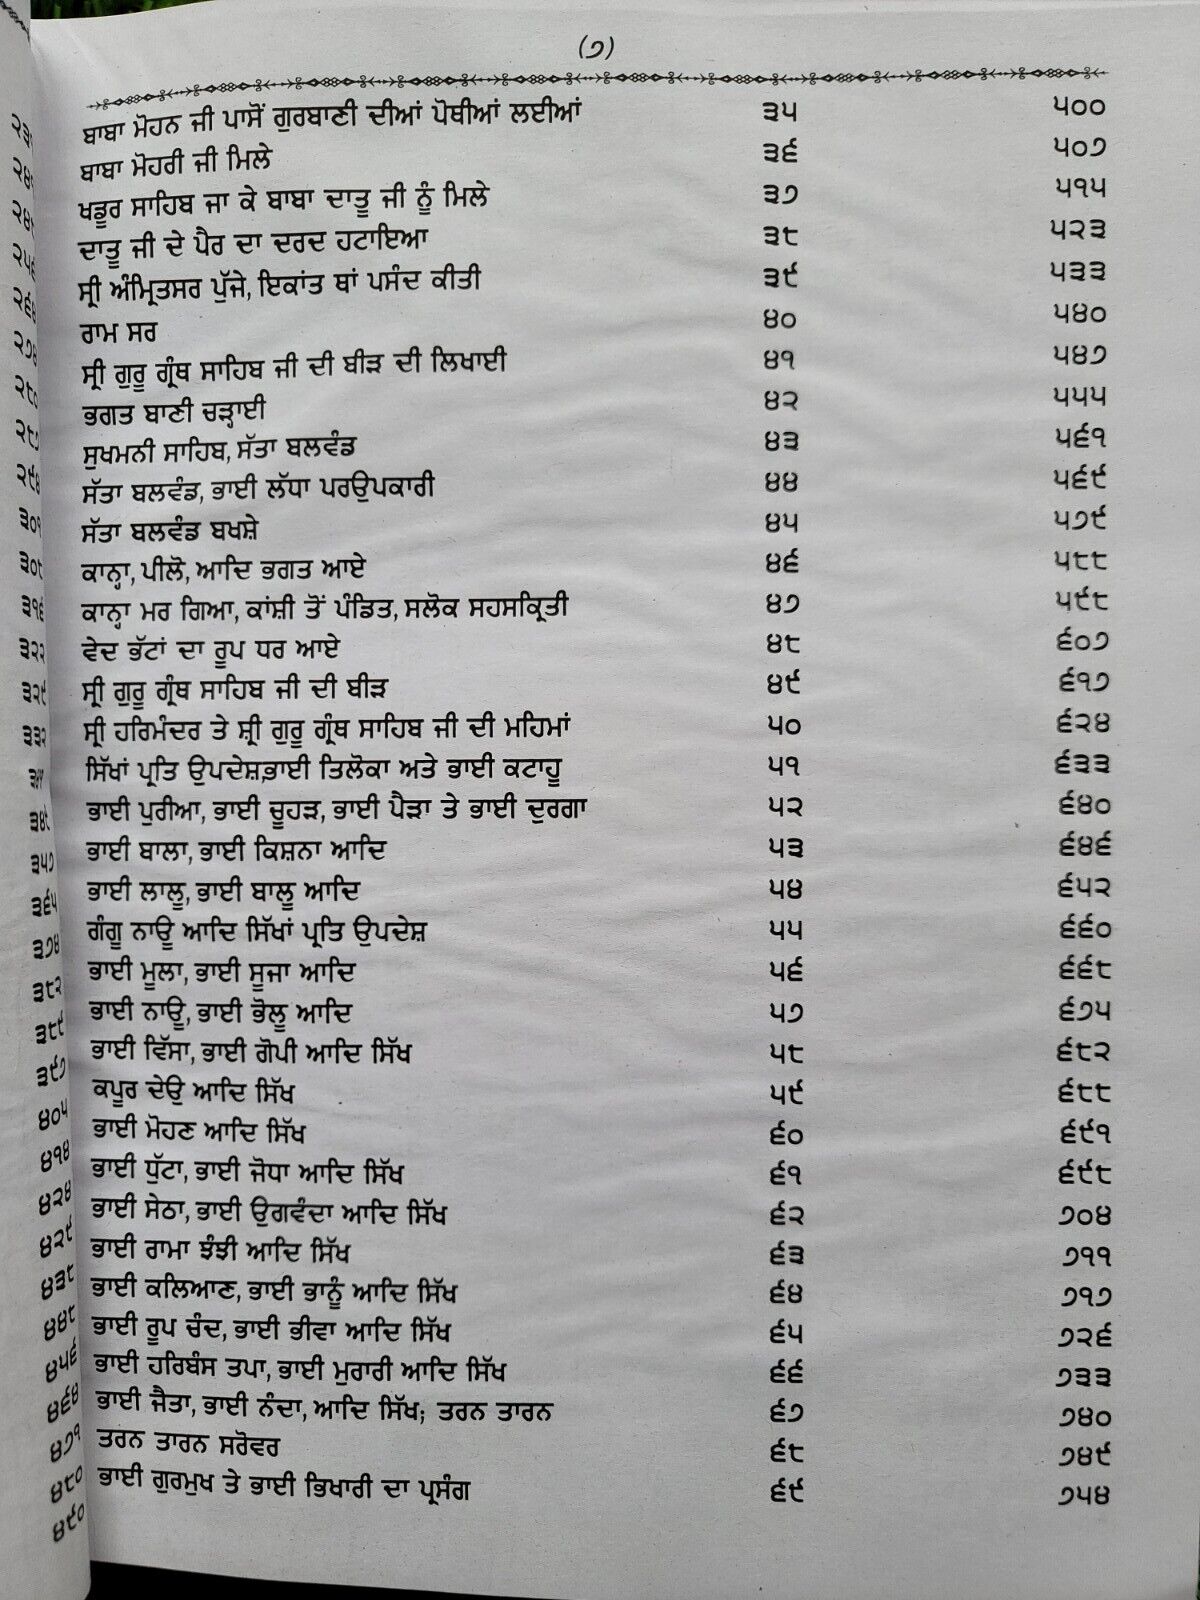 (੭)
ਬਾਬਾ ਮੋਹਨ ਜੀ ਪਾਸੋਂ ਗੁਰਬਾਣੀ ਦੀਆਂ ਪੋਥੀਆਂ ਲਈਆਂ ੩੫ ੫੦੦
ਬਾਬਾ ਮੋਹਰੀ ਜੀ ਮਿਲੇ ੩੬ ੫੦੭
ਖਡੂਰ ਸਾਹਿਬ ਜਾ ਕੇ ਬਾਬਾ ਦਾਤੂ ਜੀ ਨੂੰ ਮਿਲੇ ੩੭ ੫੧੫
ਦਾਤੂ ਜੀ ਦੇ ਪੈਰ ਦਾ ਦਰਦ ਹਟਾਇਆ ੩੮ ੫੨੩
ਸ੍ਰੀ ਅੰਮ੍ਰਿਤਸਰ ਪੁੱਜੇ, ਇਕਾਂਤ ਥਾਂ ਪਸੰਦ ਕੀਤੀ ੩੯ ੫੩੩
ਰਾਮ ਸਰ ੪੦ ੫੪੦
ਸ੍ਰੀ ਗੁਰੂ ਗ੍ਰੰਥ ਸਾਹਿਬ ਜੀ ਦੀ ਬੀੜ ਦੀ ਲਿਖਾਈ ੪੧ ੫੪੭
ਭਗਤ ਬਾਣੀ ਚੜ੍ਹਾਈ ੪੨ ੫੫੫
ਸੁਖਮਨੀ ਸਾਹਿਬ, ਸੱਤਾ ਬਲਵੰਡ ੪੩ ੫੬੧
ਸੱਤਾ ਬਲਵੰਡ, ਭਾਈ ਲੱਧਾ ਪਰਉਪਕਾਰੀ ੪੪ ੫੬੯
ਸੱਤਾ ਬਲਵੰਡ ਬਖਸ਼ੇ ੪੫ ੫੭੯
ਕਾਨ੍ਹਾ, ਪੀਲੋ, ਆਦਿ ਭਗਤ ਆਏ ੪੬ ੫੮੮
ਕਾਨ੍ਹਾ ਮਰ ਗਿਆ, ਕਾਂਸ਼ੀ ਤੋਂ ਪੰਡਿਤ, ਸਲੋਕ ਸਹਸਕ੍ਰਿਤੀ ੪੭ ੫੯੮
ਵੇਦ ਭੱਟਾਂ ਦਾ ਰੂਪ ਧਰ ਆਏ ੪੮ ੬੦੭
ਸ੍ਰੀ ਗੁਰੂ ਗ੍ਰੰਥ ਸਾਹਿਬ ਜੀ ਦੀ ਬੀੜ ੪੯ ੬੧੭
ਸ੍ਰੀ ਹਰਿਮੰਦਰ ਤੇ ਸ਼੍ਰੀ ਗੁਰੂ ਗ੍ਰੰਥ ਸਾਹਿਬ ਜੀ ਦੀ ਮਹਿਮਾਂ ੫੦ ੬੨੪
ਸਿੱਖਾਂ ਪ੍ਰਤਿ ਉਪਦੇਸ਼,ਭਾਈ ਤਿਲੋਕਾ ਅਤੇ ਭਾਈ ਕਟਾਹੂ ੫੧ ੬੩੩
ਭਾਈ ਪੁਰੀਆ, ਭਾਈ ਚੂਹੜ, ਭਾਈ ਪੈੜਾ ਤੇ ਭਾਈ ਦੁਰਗਾ ੫੨ ੬੪੦
ਭਾਈ ਬਾਲਾ, ਭਾਈ ਕਿਸ਼ਨਾ ਆਦਿ ੫੩ ੬੪੬
ਭਾਈ ਲਾਲੂ, ਭਾਈ ਬਾਲੂ ਆਦਿ ੫੪ ੬੫੨
ਗੰਗੂ ਨਾਊ ਆਦਿ ਸਿੱਖਾਂ ਪ੍ਰਤਿ ਉਪਦੇਸ਼ ੫੫ ੬੬੦
ਭਾਈ ਮੂਲਾ, ਭਾਈ ਸੂਜਾ ਆਦਿ ੫੬ ੬੬੮
ਭਾਈ ਨਾਊ, ਭਾਈ ਭੋਲੂ ਆਦਿ ੫੭ ੬੭੫
ਭਾਈ ਵਿੱਸਾ, ਭਾਈ ਗੋਪੀ ਆਦਿ ਸਿੱਖ ੫੮ ੬੮੨
ਕਪੂਰ ਦੇਉ ਆਦਿ ਸਿੱਖ ੫੯ ੬੮੮
ਭਾਈ ਮੋਹਣ ਆਦਿ ਸਿੱਖ ੬੦ ੬੯੧
ਭਾਈ ਧੁੱਟਾ, ਭਾਈ ਜੋਧਾ ਆਦਿ ਸਿੱਖ ੬੧ ੬੯੮
ਭਾਈ ਸੇਠਾ, ਭਾਈ ਉਗਵੰਦਾ ਆਦਿ ਸਿੱਖ ੬੨ ੭੦੪
ਭਾਈ ਰਾਮਾ ਝੰਝੀ ਆਦਿ ਸਿੱਖ ੬੩ ੭੧੧
ਭਾਈ ਕਲਿਆਣ, ਭਾਈ ਭਾਨੂੰ ਆਦਿ ਸਿੱਖ ੬੪ ੭੧੭
ਭਾਈ ਰੂਪ ਚੰਦ, ਭਾਈ ਭੀਵਾ ਆਦਿ ਸਿੱਖ ੬੫ ੭੨੬
ਭਾਈ ਹਰਿਬੰਸ ਤਪਾ, ਭਾਈ ਮੁਰਾਰੀ ਆਦਿ ਸਿੱਖ ੬੬ ੭੩੩
ਭਾਈ ਜੈਤਾ, ਭਾਈ ਨੰਦਾ, ਆਦਿ ਸਿੱਖ; ਤਰਨ ਤਾਰਨ ੬੭ ੭੪੦
ਤਰਨ ਤਾਰਨ ਸਰੋਵਰ ੬੮ ੭੪੯
ਭਾਈ ਗੁਰਮੁਖ ਤੇ ਭਾਈ ਭਿਖਾਰੀ ਦਾ ਪ੍ਰਸੰਗ ੬੯ ੭੫੪
੨੮੦
੨੮੭
੨੯੪
੩੦੧
੩੦੮
੩੧੬
੩੨੨
੩੨੯
੩੩੨
੩੪੯
੩੫੭
੩੬੫
੩੭੪
੩੮੨
੩੮੯
੩੯੭
੪੦੫
੪੧੪
੪੨੪
੪੨੯
੪੩੮
੪੪੮
੪੫੬
੪੬੪
੪੭੧
੪੮੦
੪੯੦